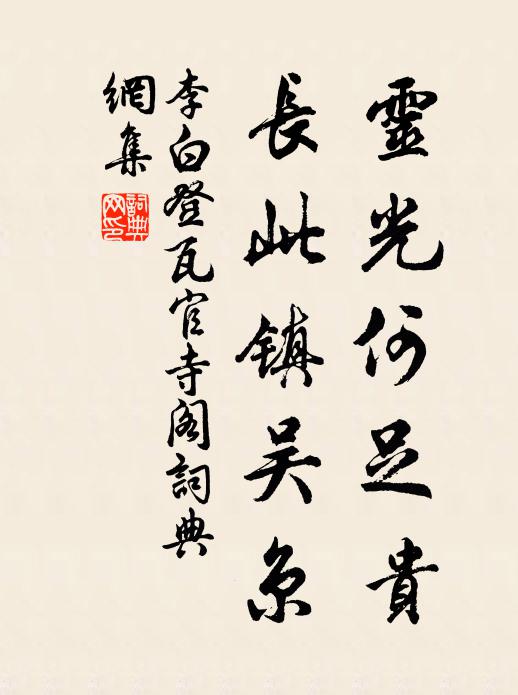 靈光何足貴
長此鎮吴京
李白登瓦官寺阁詞典
網集
詞典
网印